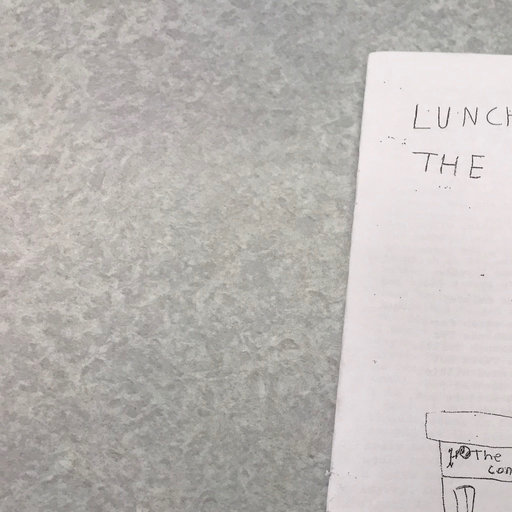 LUNCH
THE
The
con